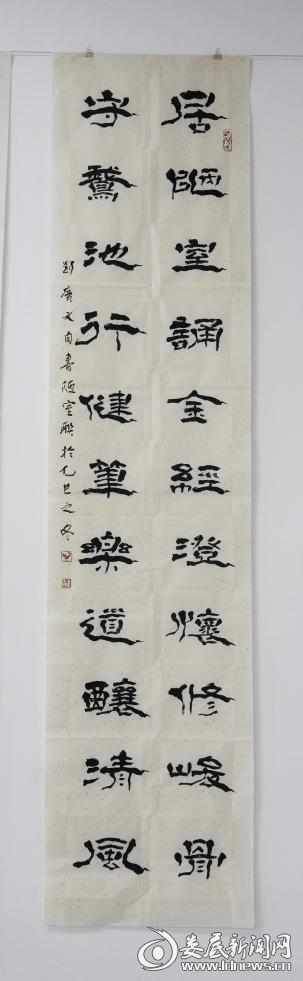 居陋室誦金經澄懷修峻骨
守鵞池行健筆樂道釀清風
廣文自書陋室聯於乙巳之冬
娄底新闻网
www.ldnews.cn